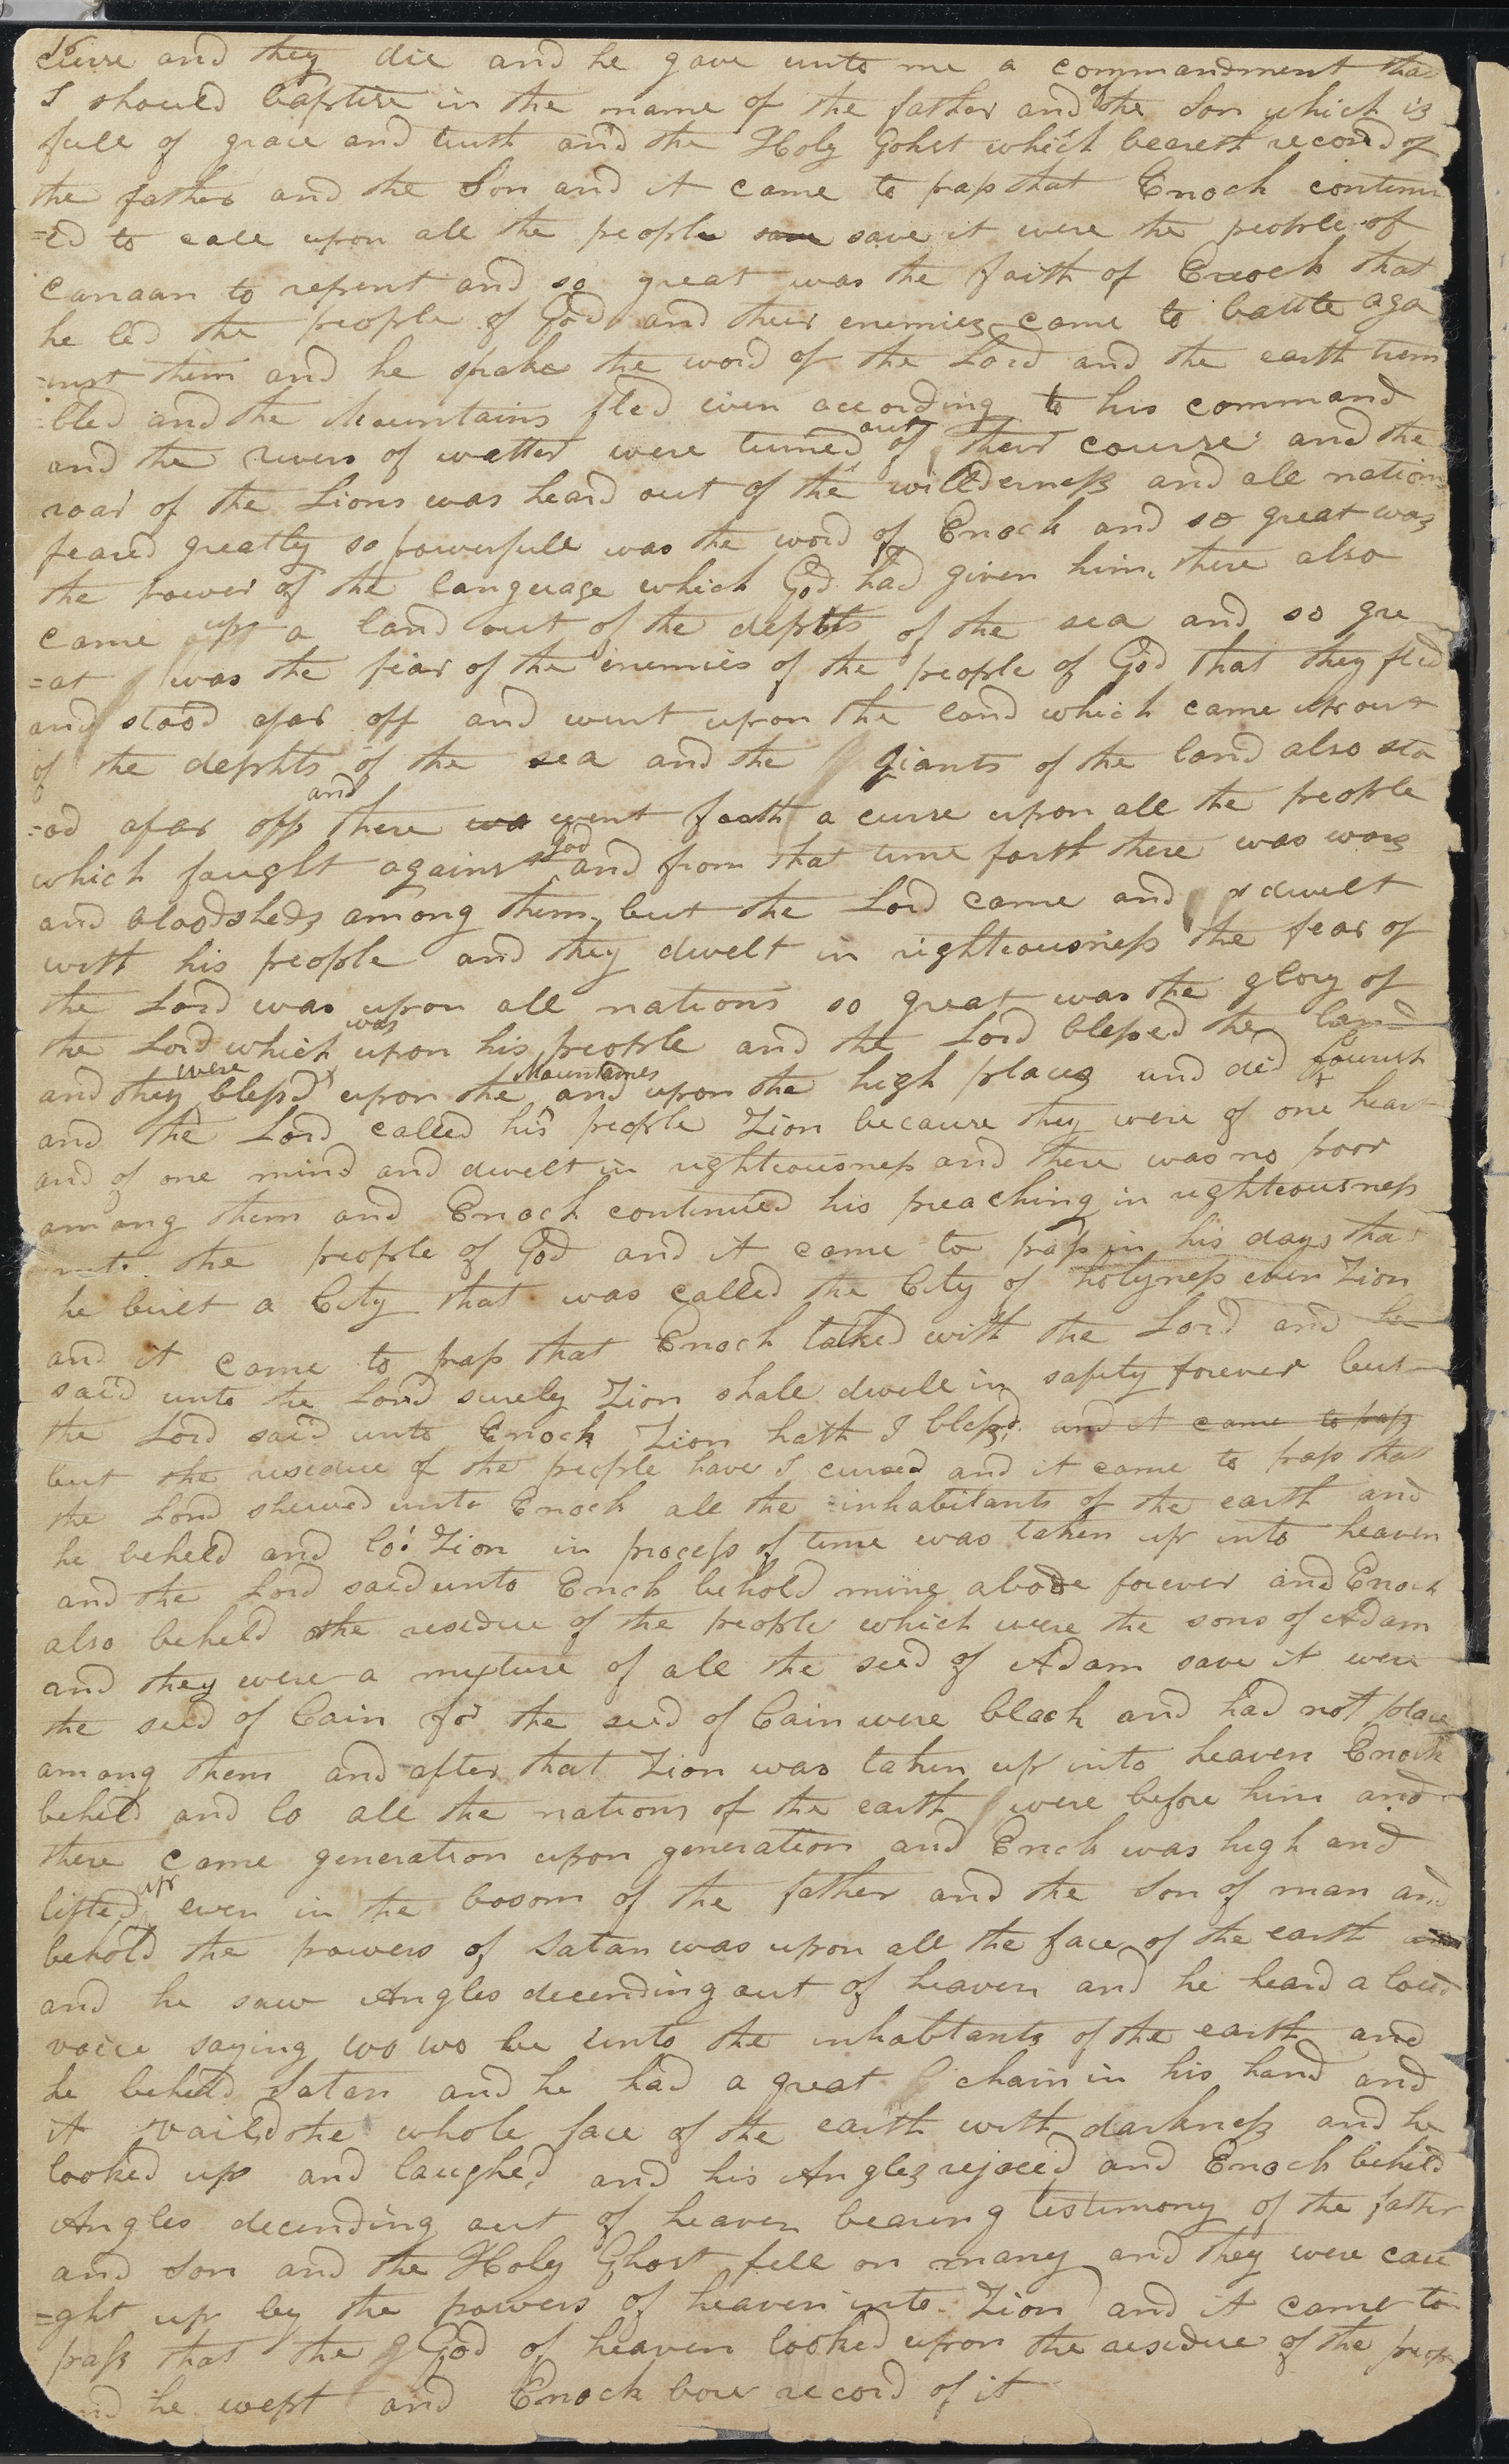 16
curse and they die and he gave unto me a commandment that
I should baptise in the name of the father and of the Son which is
full of grace and truth and the Holy Gohst which beareth record of
the father and the Son and it came to pass that Enoch continu
=ed to call upon all the people save save it were the people of
Canaan to repent and so great was the faith of Enoch that
he led the people of God and their enemies came to battle aga
=inst them and he spake the word of the Lord and the earth trem
=bled and the Mountains fled even according to his command
and the rivers of watter were turned out of their course and the
roar of the Lions was heard out of the willderness and all nations
feared greatly so powerfull was the word of Enoch and so great was
the power of the language which God had given him, there also
came up a land out of the depths of the sea and so gre
=at was the fear of the enemies of the people of God that they fled
and stood afar off and went upon the land which came up out
of the dephts of the sea and the giants of the land also sto
=od afar off and there wa went forth a curse upon all the people
which faught against God and from that time forth there was wars
and bloodsheds among them, but the Lord came and dwelt
with his people and they dwelt in righteousness the fear of
the Lord was upon all nations so great was the glory of
the Lord which was upon his people and the Lord blessed the land
and they were blessd upon the Mountains and upon the high places and did flourish
and the Lord called his people Zion because they were of one heart
and of one mind and dwelt in righteousness and there was no poor
among them and Enoch continued his preaching in righteousness
unto the people of God and it came to pass in his days that
he built a City that was called the City of holyness even Zion
and it came to pass that Enoch talked with the Lord and he
said unto the Lord surely Zion shall dwell in safety forever but
the Lord said unto Enoch Zion hath I blessd and it came to pass
but the residue of the people have I cursed and it came to pass that
the Lord shewed unto Enoch all the inhabitants of the earth and
he beheld and lo! Zion in process of time was taken up into heaven
and the Lord said unto Enoh behold mine abode forever and Enoch
also beheld the residue of the people which were the sons of Adam
and they were a mixture of all the seed of Adam save it were
the seed of Cain for the seed of Cain were black and had not place
among them and after that Zion was taken up into heaven Enoch
beheld and lo all the nations of the earth were before him and
there came generation upon generation and Enoh was high and
lifted up even in the bosom of the father and the Son of man and
behold the powers of Satan was upon all the face of the earth
and he saw Angles decending out of heaven and he heard a loud
voice saying wo wo be unto the inhabtants of the earth and
he beheld Satan and he had a great chain in his hand and
it vaild the whole face of the earth with darkness and he
looked up and laughed and his Angles rejoced and Enoch beheld
Angles decending out of heaven bearing testimony of the father
and Son and the Holy Ghost fell on many and they were cau
=ght up by the powers of heaven into Zion and it came to
pass that the God of heaven looked upon the residue of the peop
and he wept and Enoch bore record of it